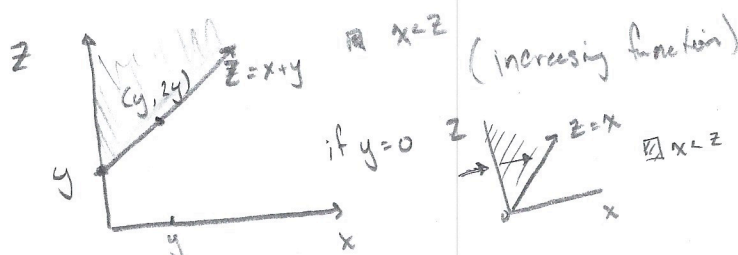 Z
(y, 2y)
Z = x+y
x < z
(increasing function)
y
if y=0
Z
Z = x
x < z
y
x
x